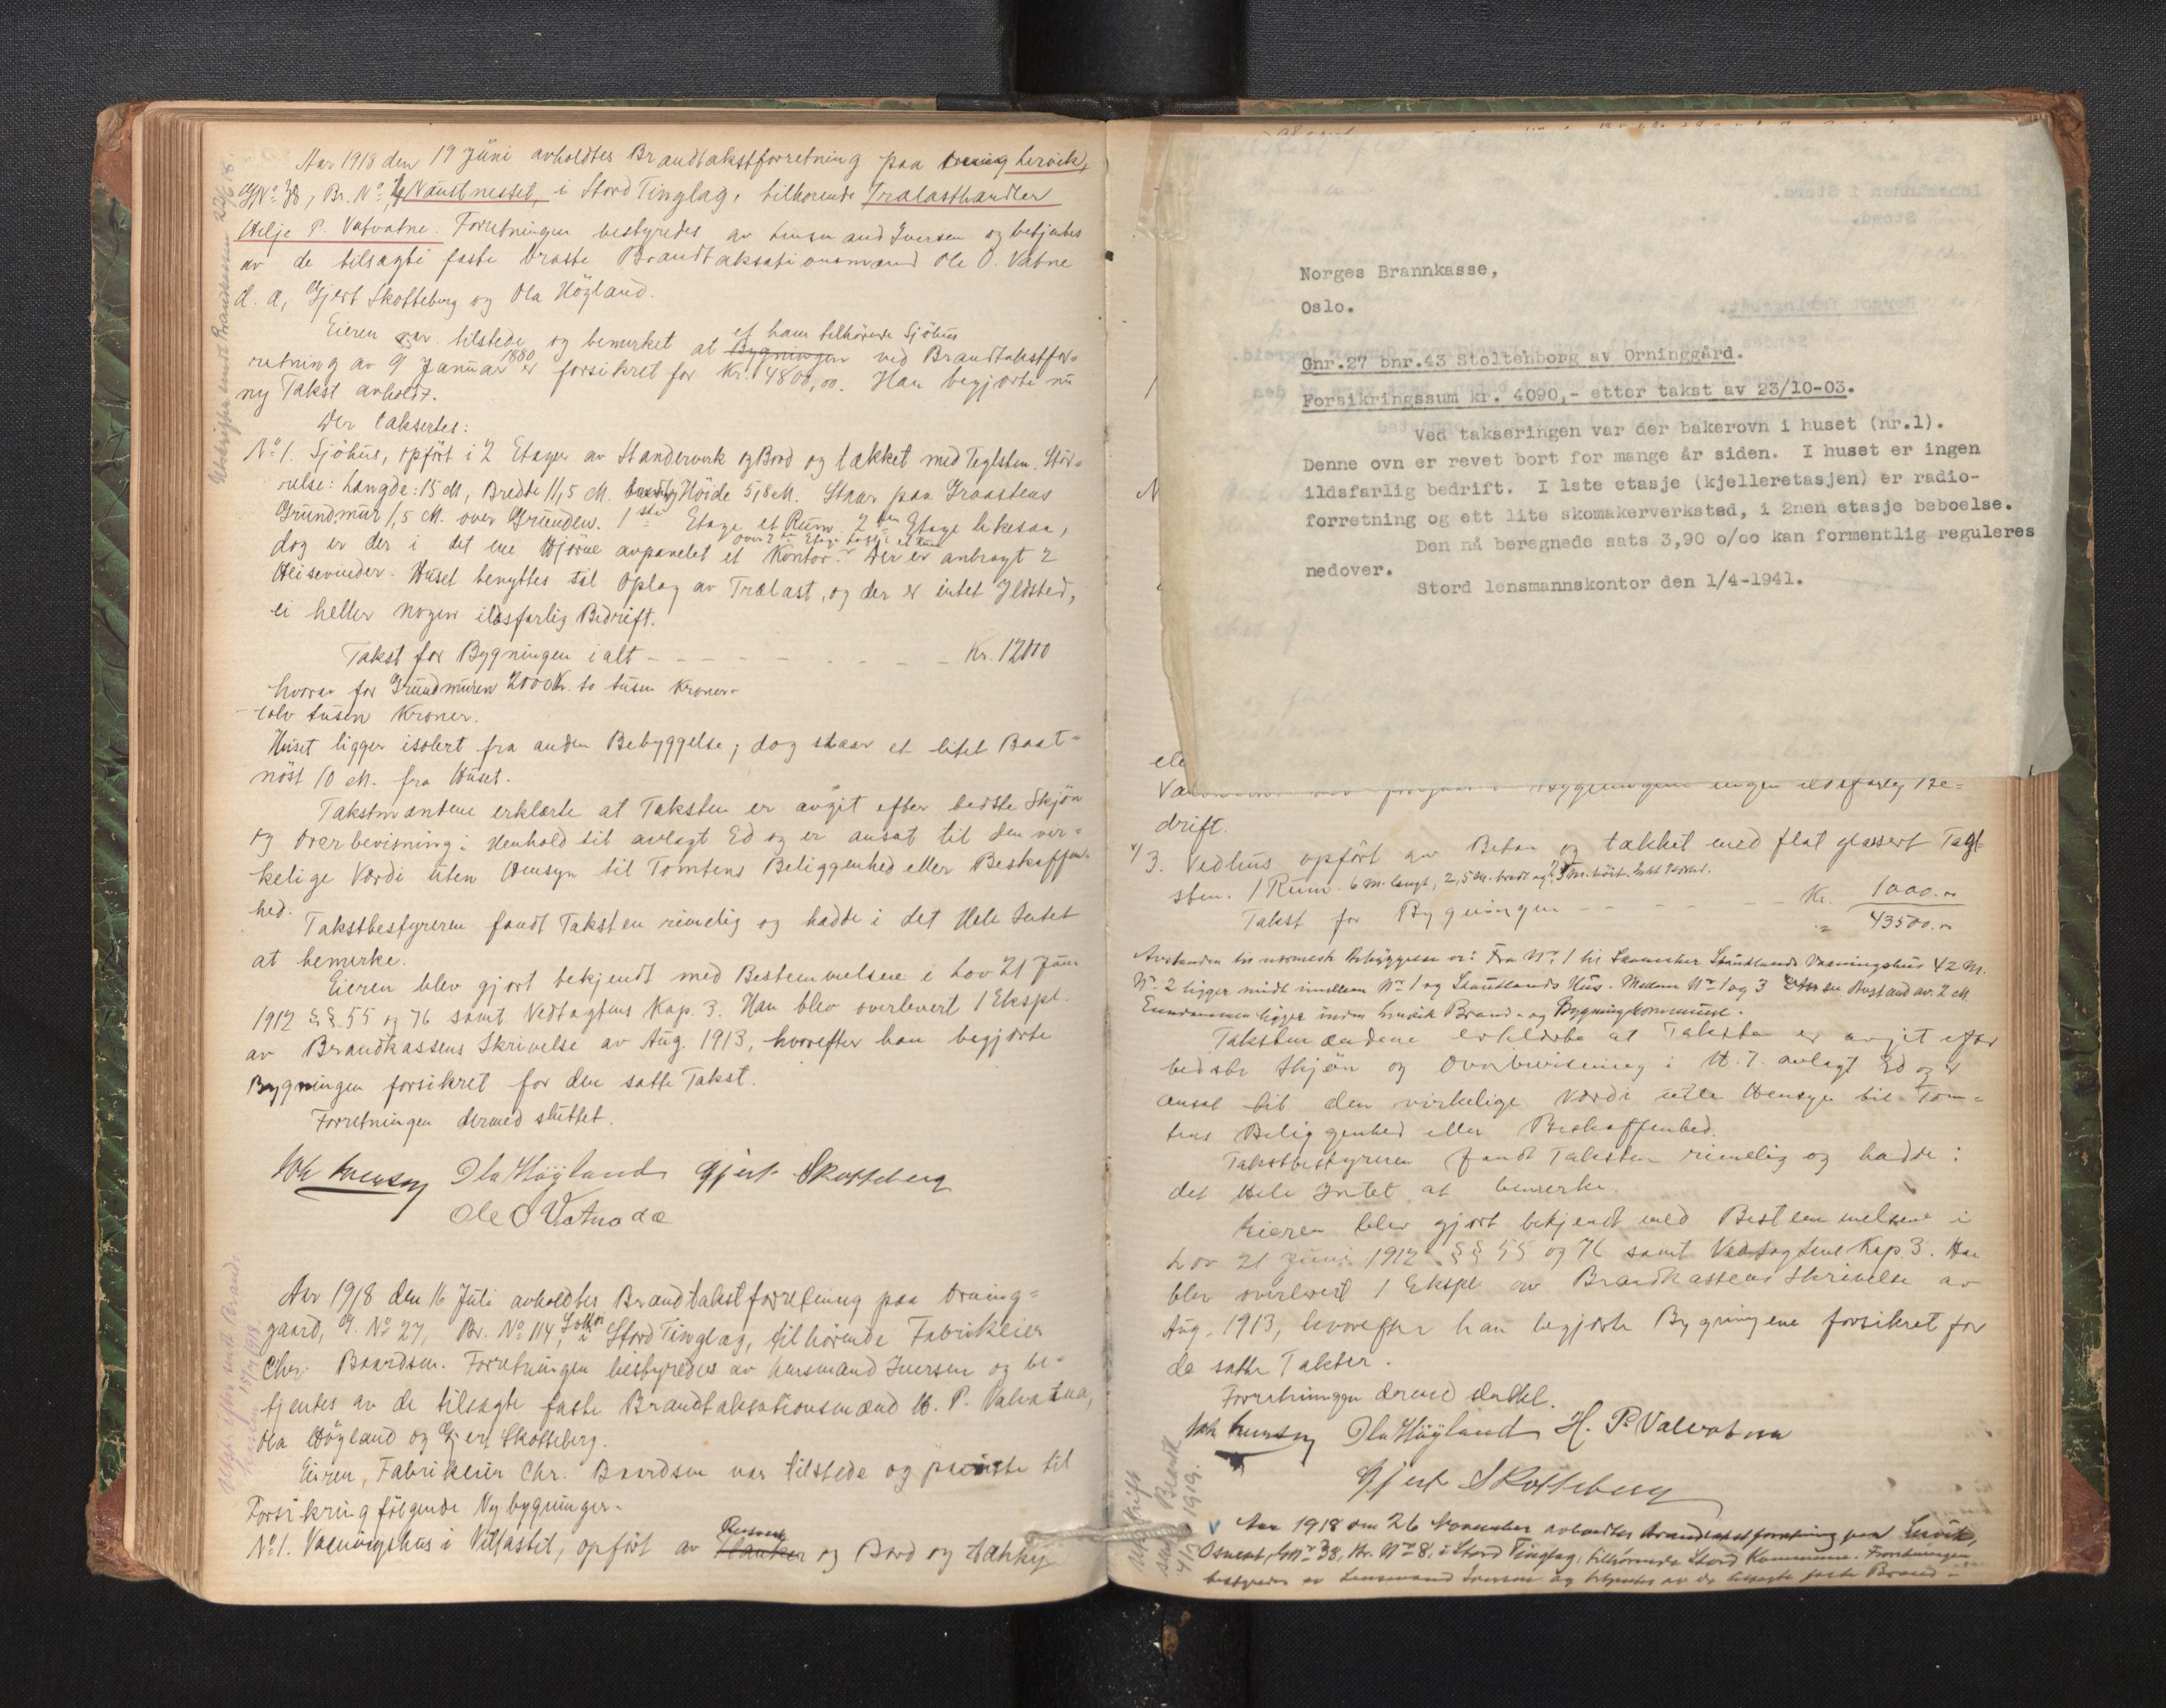 Aar 1918 den 19 Juni avholdtes Brandtakstforretning paa Lervik,
G.No 38, Br. No Naustneset, i Stord Tinglag, tilhørende Trælasthandler
Helje P. Vatvatne. Forretningen bestyredes av Lensmand Iversen og betjentes
av de tilsagte faste Brandtaksationsmænd Ole O. Vatne
d. æ, Gjert Skotteberg og Ola Högland.
Eieren var tilstede og bemerket at Bygningen et ham tilhörende Sjöhus ved Brandtakstfor-
retning av 9 Januar 1880 er forsikret for Kr. 4800,00. Han begjærte nu
ny Takst avholdt.
Der taksertes:
No 1. Sjöhus, opfört i 2 Etager av Standerverk og Bord og tækket med Teglsten. Stör-
relse: Længde: 15 M, Bredte 11,5 M. Höide 5,8 M. Staar paa Graastens
Grundmur 1,5 M. over Grunden. 1ste Etage et Rum. 2den Etage likesaa,
dog er der i det ene Hjørne avpanelet et Kontor. Over 2den Etage Der er anbragt 2
Heisevinder. Huset benyttes til Oplag av Trælast, og der er intet Ildsted,
ei heller nogen ildsfarlig Bedrift.
Takst for Bygningen ialt - - - - - - - - - Kr. 12000
hvorav for Grundmuren 2000 Kr. to tusen Kroner.
- tolv tusen Kroner.
Huset ligger isolert fra anden Bebyggelse, dog staar et litet Baat-
nöst 10 M. fra Huset.
Takstmændene erklærte at Taksten er avgit efter bedste Skjön
og Overbevisning i Henhold til avlagt Ed og er ansat til den vir-
kelige Værdi uten Hensyn til Tomtens Beliggenhed eller Beskaffen-
hed.
Takstbestyreren fandt Taksten rimelig og hadde i det Hele Intet
at bemerke.
Eieren blev gjort bekjendt med Bestemmelsene i Lov 21 Juni
1912 §§ 55 og 76 samt Vedtægtens Kap. 3. Han blev overlevert 1 Ekspl.
av Brandkassens Skrivelse av Aug. 1913, hvorefter han begjærte
Bygningen forsikret for den satte Takst.
Forretningen dermed sluttet.
Joh Iversen Ola Høyland Gjert Skotteberg
Ole O Vatna d æ
Aar 1918 den 16 Juli avholdtes Brandtakstforretning paa Orning-
gaard, G. No 27, Br. No 114, i Stord Tinglag, tilhørende Fabrikeier
Chr. Baardsen. Forretningen bestyredes av Lensmand Iversen og be-
tjentes av de tilsagte faste Brandtaksationsmænd H. P. Valvatna,
Ola Högland og Gjert Skotteberg.
Eieren, Fabrikeier Chr. Baardsen var tilstede og paaviste til
Forsikring fölgende Nybygninger.
No 1. Vaaningshus i Villastil, opfört av Planker og Bord og tækket
Norges Brannkasse,
Oslo.
Gnr.27 bnr.43 Stoltenborg av Orninggård.
Forsikringssum kr. 4090,- etter takst av 23/10-03.
Ved takseringen var der bakerovn i huset (nr.1).
Denne ovn er revet bort for mange år siden. I huset er ingen
ildsfarlig bedrift. I 1ste etasje (kjelleretasjen) er radio-
forretning og ett lite skomakerverkstad, i 2nen etasje beboelse.
Den nå beregnede sats 3,90 o/oo kan formentlig reguleres
nedover.
Stord lensmannskontor den 1/4-1941.
Bygningen ingen ildsfarlig Be-
drift.
3. Vedhus opfört av Beton og tækket med flat glassert Tegl-
sten. 1 Rum. 6 M. langt, 2,5 M. bredt og
Takst for Bygningen - - - - - Kr. 1000.00
" 43500.00
Avstanden til nærmeste Bebyggelse er: Fra No 1 til Vaaningshus 42 M.
No 2 ligger midt imellem No 1 og Hus. Mellem No 1 og 3 er en Avstand av 2 M.
Eiendommen ligger inden Lervik Brand- og Bygningskommune.
Takstmændene erklærte at Taksten er avgit efter
bedste Skjön og Overbevisning i H. T. avlagt Ed og er
ansat til den virkelige Værdi uten Hensyn til Tom-
tens Beliggenhed eller Beskaffenhed.
Takstbestyreren fandt Taksten rimelig og hadde i
det Hele Intet at bemerke.
Eieren blev gjort bekjendt med Bestemmelsene i
Lov 21 Juni 1912 §§ 55 og 76 samt Vedtægtene Kap. 3. Han
blev overlevert 1 Ekspl av Brandkassens Skrivelse av
Aug. 1913, hvorefter han begjærte Bygningene forsikret for
de satte Takster.
Forretningen dermed sluttet.
Joh Iversen Ola Høyland H. P. Valvatna
Gjert Skotteberg
Aar 1918 den 26 November avholdtes Brandtakstforretning paa Lervik,
Osneset, G.No 38, Br. No 8, i Stord Tinglag, tilhørende Stord Kommune. Forretningen
bestyredes av Lensmand Iversen og betjentes av de tilsagte faste Brand-